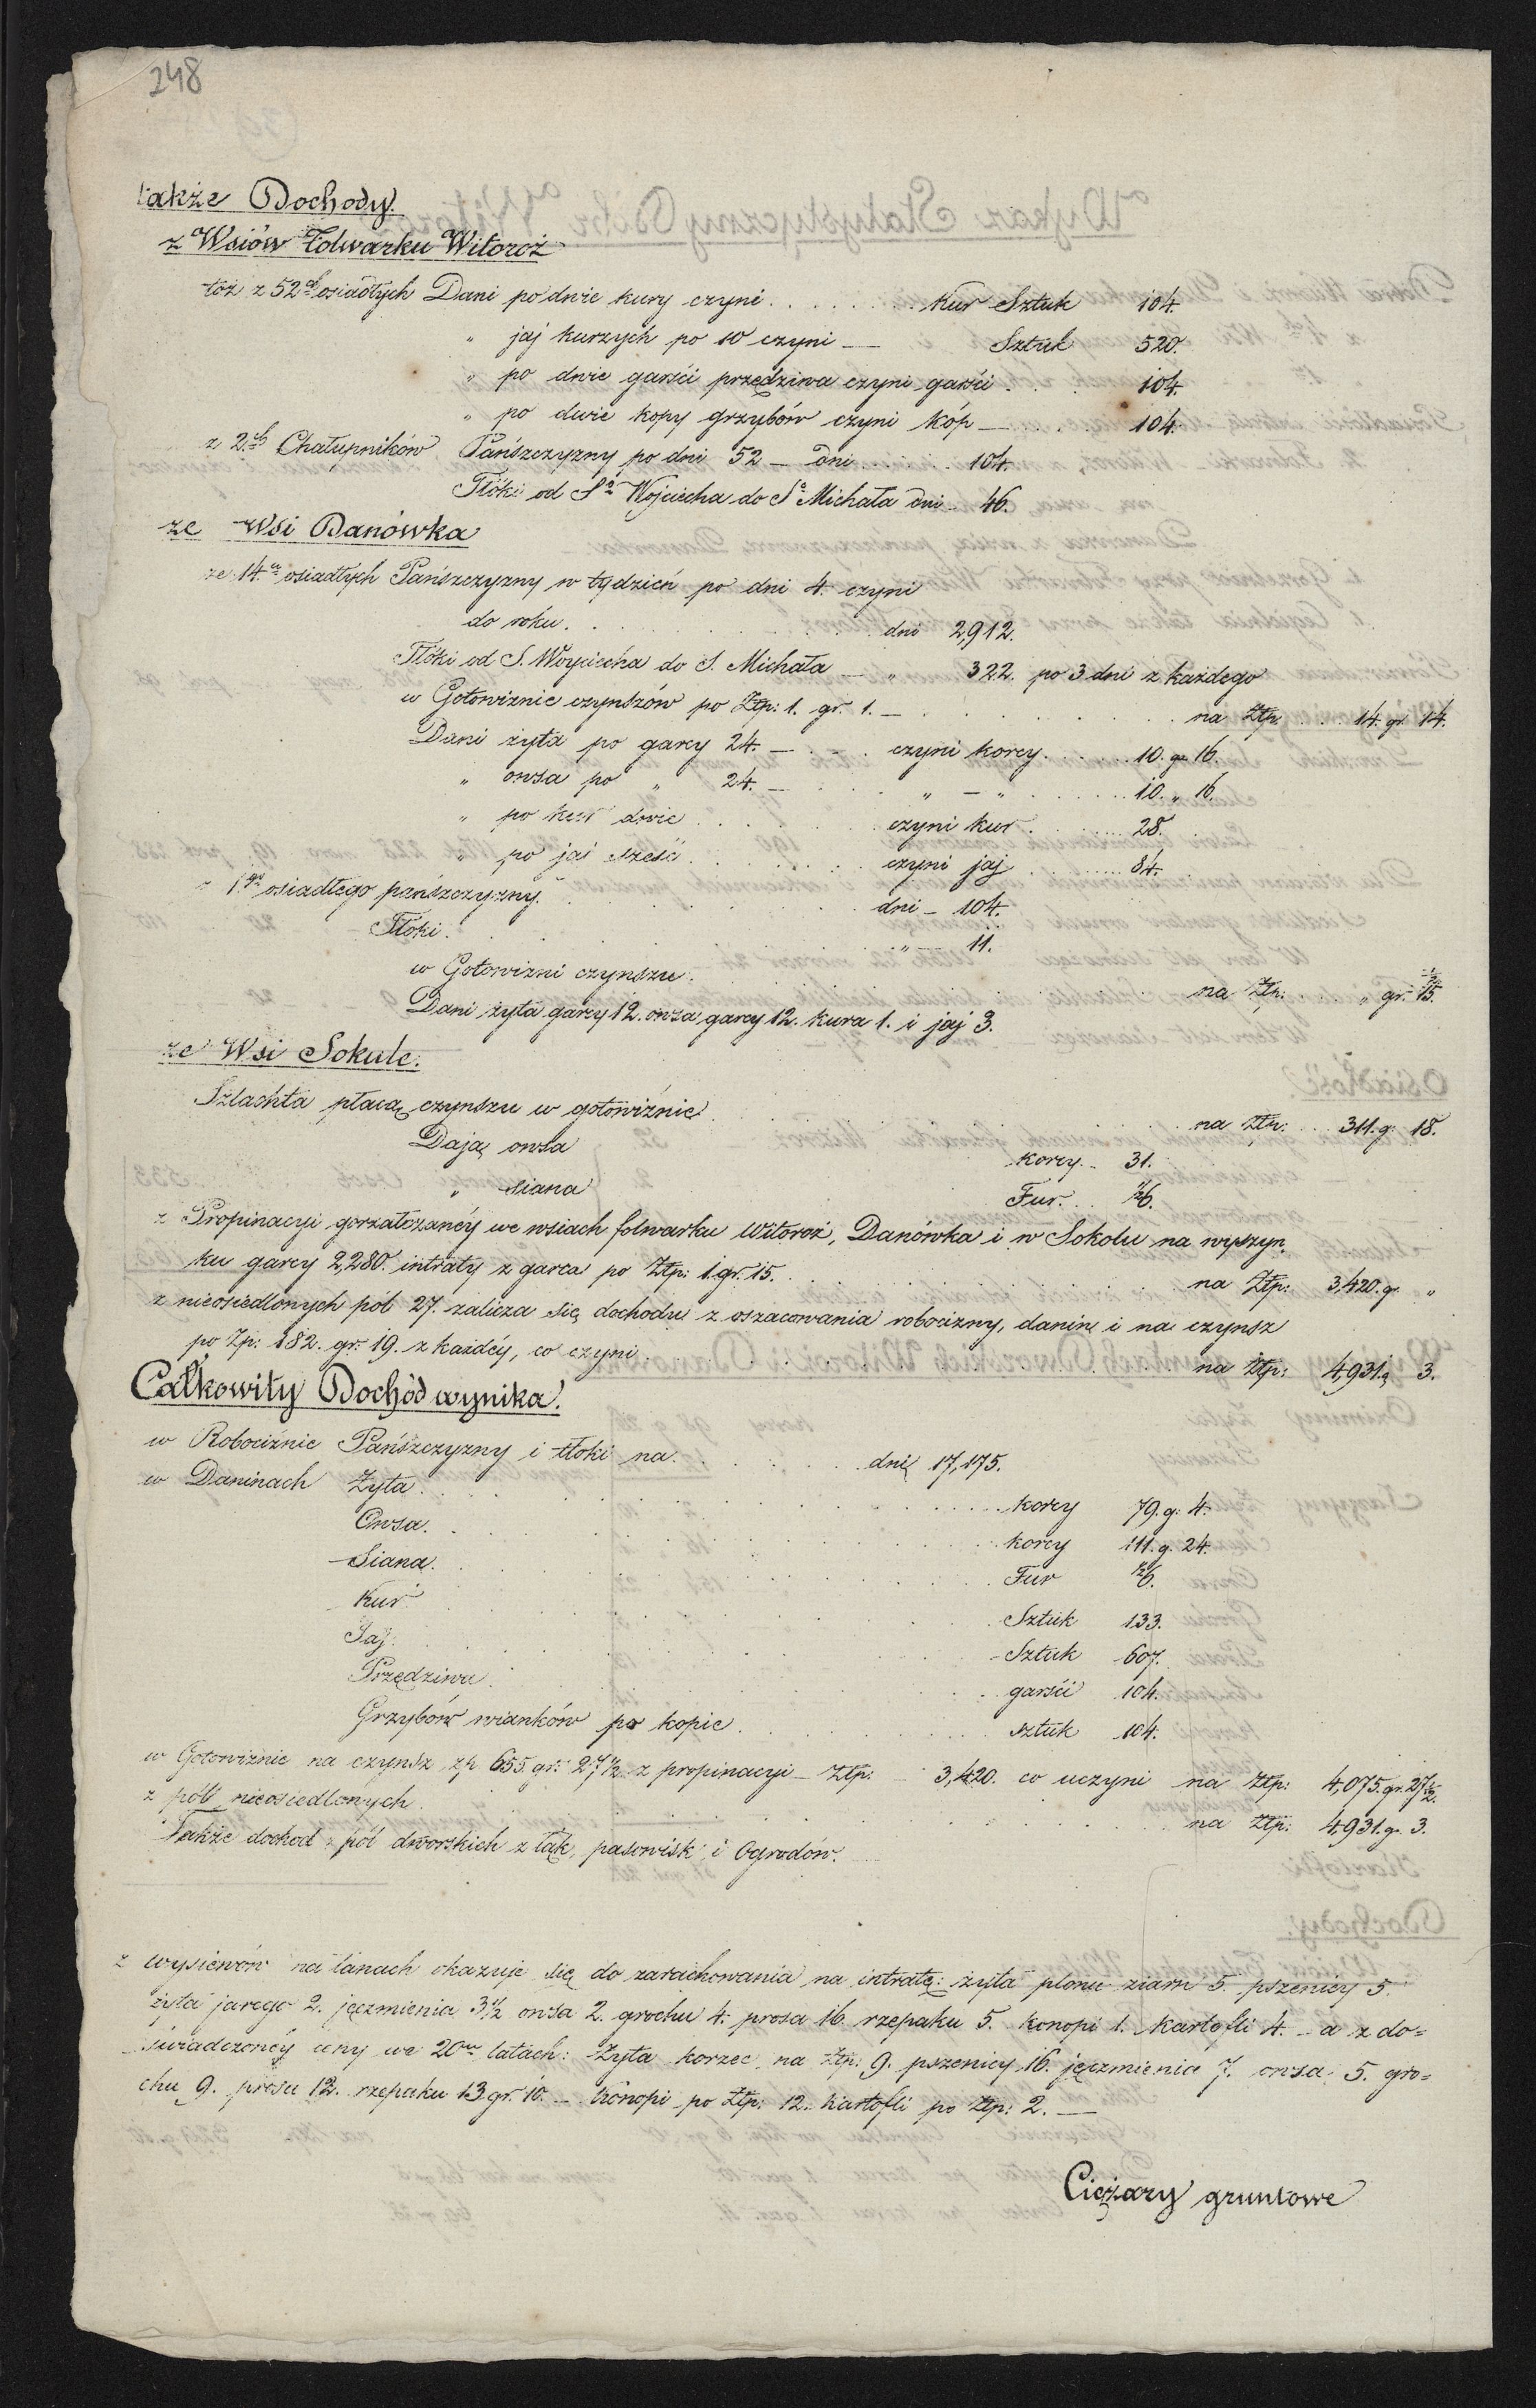 248
także Dochody.
z Wsiów Folwarku Witoroż
toż z 52ch osiadłych Dani po dwie kury czyni . . . . . . . Kur Sztuk 104.
" jaj kurzych po 10 czyni — Sztuk 520.
" po dwie garści przędziwa czyni garści . . . 104.
" po dwie kopy grzybów czyni kóp — . . . 104.
z 2ch Chałupników Pańszczyzny po dni 52 — dni . . . . . . 104.
Tłóki od So Wojciecha do So Michała dni — 46.
ze Wsi Danówka
ze 14u osiadłych Pańszczyzny w tydzień po dni 4. czyni
do roku. . . . . . . dni 2,912.
Tłóki od S. Woyciecha do S. Michała — " 322. po 3 dni z każdego
w Gotowiznie czynszów po Złp: 1. gr. 1. — . . . . . na Złp: . . . 14. gr 14.
Dani żyta po garcy 24. — . . . czyni korcy. . . . . . 10. g. 16.
" owsa po " 24. — . . . " — " . . . . . . 10. " 16.
" po kur dwie . . . . . . czyni kur . . . . . . 28.
" po jaj sześć . . . . . . czyni jaj . . . . . . 84.
z 1go osiadłego pańszczyzny. . . . . . dni — 104.
Tłoki. . . . . . . " — 11.
w Gotowizni czynszu. . . . . . . na Złp: . . . " gr. 15.
Dani żyta garcy 12. owsa garcy 12. kura 1. i jaj 3.
ze Wsi Sokule.
Szlachta płacą czynszu w gotowiźnie . . . . . . na Złp: . . . 311. g. 18.
Dają owsa korcy . . 31.
" siana Fur . . 26.
z Propinacyi gorzałczanéy we wsiach folwarku Witoroż, Danówka i w Sokolu na wyszyn.
ku garcy 2,280. intraty z garca po Złp: 1. gr. 15. . . . . . . na Złp: 3,420. g. "
z nieosiedlonych pół 27. zalicza się dochodu z oszacowania robocizny, danin i na czynsz
po Zp: 182. gr. 19. z każdéy, co czyni . . . . . . na Złp: 4,931. g 3.
Całkowity Dochód wynika.
w Robociźnie Pańszczyzny i tłoki na . . . . . . dni 17,175.
w Daninach Żyta . . . . . . korcy 79. g. 4.
Owsa. . . . . . . korcy 111. g. 24.
Siana. . . . . . . Fur 26.
Kur . . . . . . Sztuk 133.
Jaj. . . . . . . Sztuk 607.
Przędziwa . . . . . . garści 104.
Grzybów wianków po kopie . . . . . . sztuk 104.
w Gotowiznie na czynsz zp 655. gr. 27½ z propinacyi — Złp: 3,420. co uczyni na Złp: 4,075. gr. 27½.
z półt nieosiedlonych . . . . . . na Złp: 4,931. g. 3.
Także dochod z pól dworskich z łąk, pasowisk, i Ogrodów.
z wysiewów na łanach okazuje się do zarachowania na intratę: żyta plonu ziarn 5. pszenicy 5.
żyta jarego 2. jęczmienia 3½ owsa 2. grochu 4. prosa 16. rzepaku 5. konopi 1. kartofli 4. — a z do=
świadczonéy ceny we 20tu latach: Żyta korzec na Złp: 9. pszenicy 16. jęczmienia 7. owsa 5. gro=
chu 9. prosa 12. rzepaku 13 gr. 10. — konopi po Złp: 12. kartofli po Złp: 2. —
Ciężary gruntowe